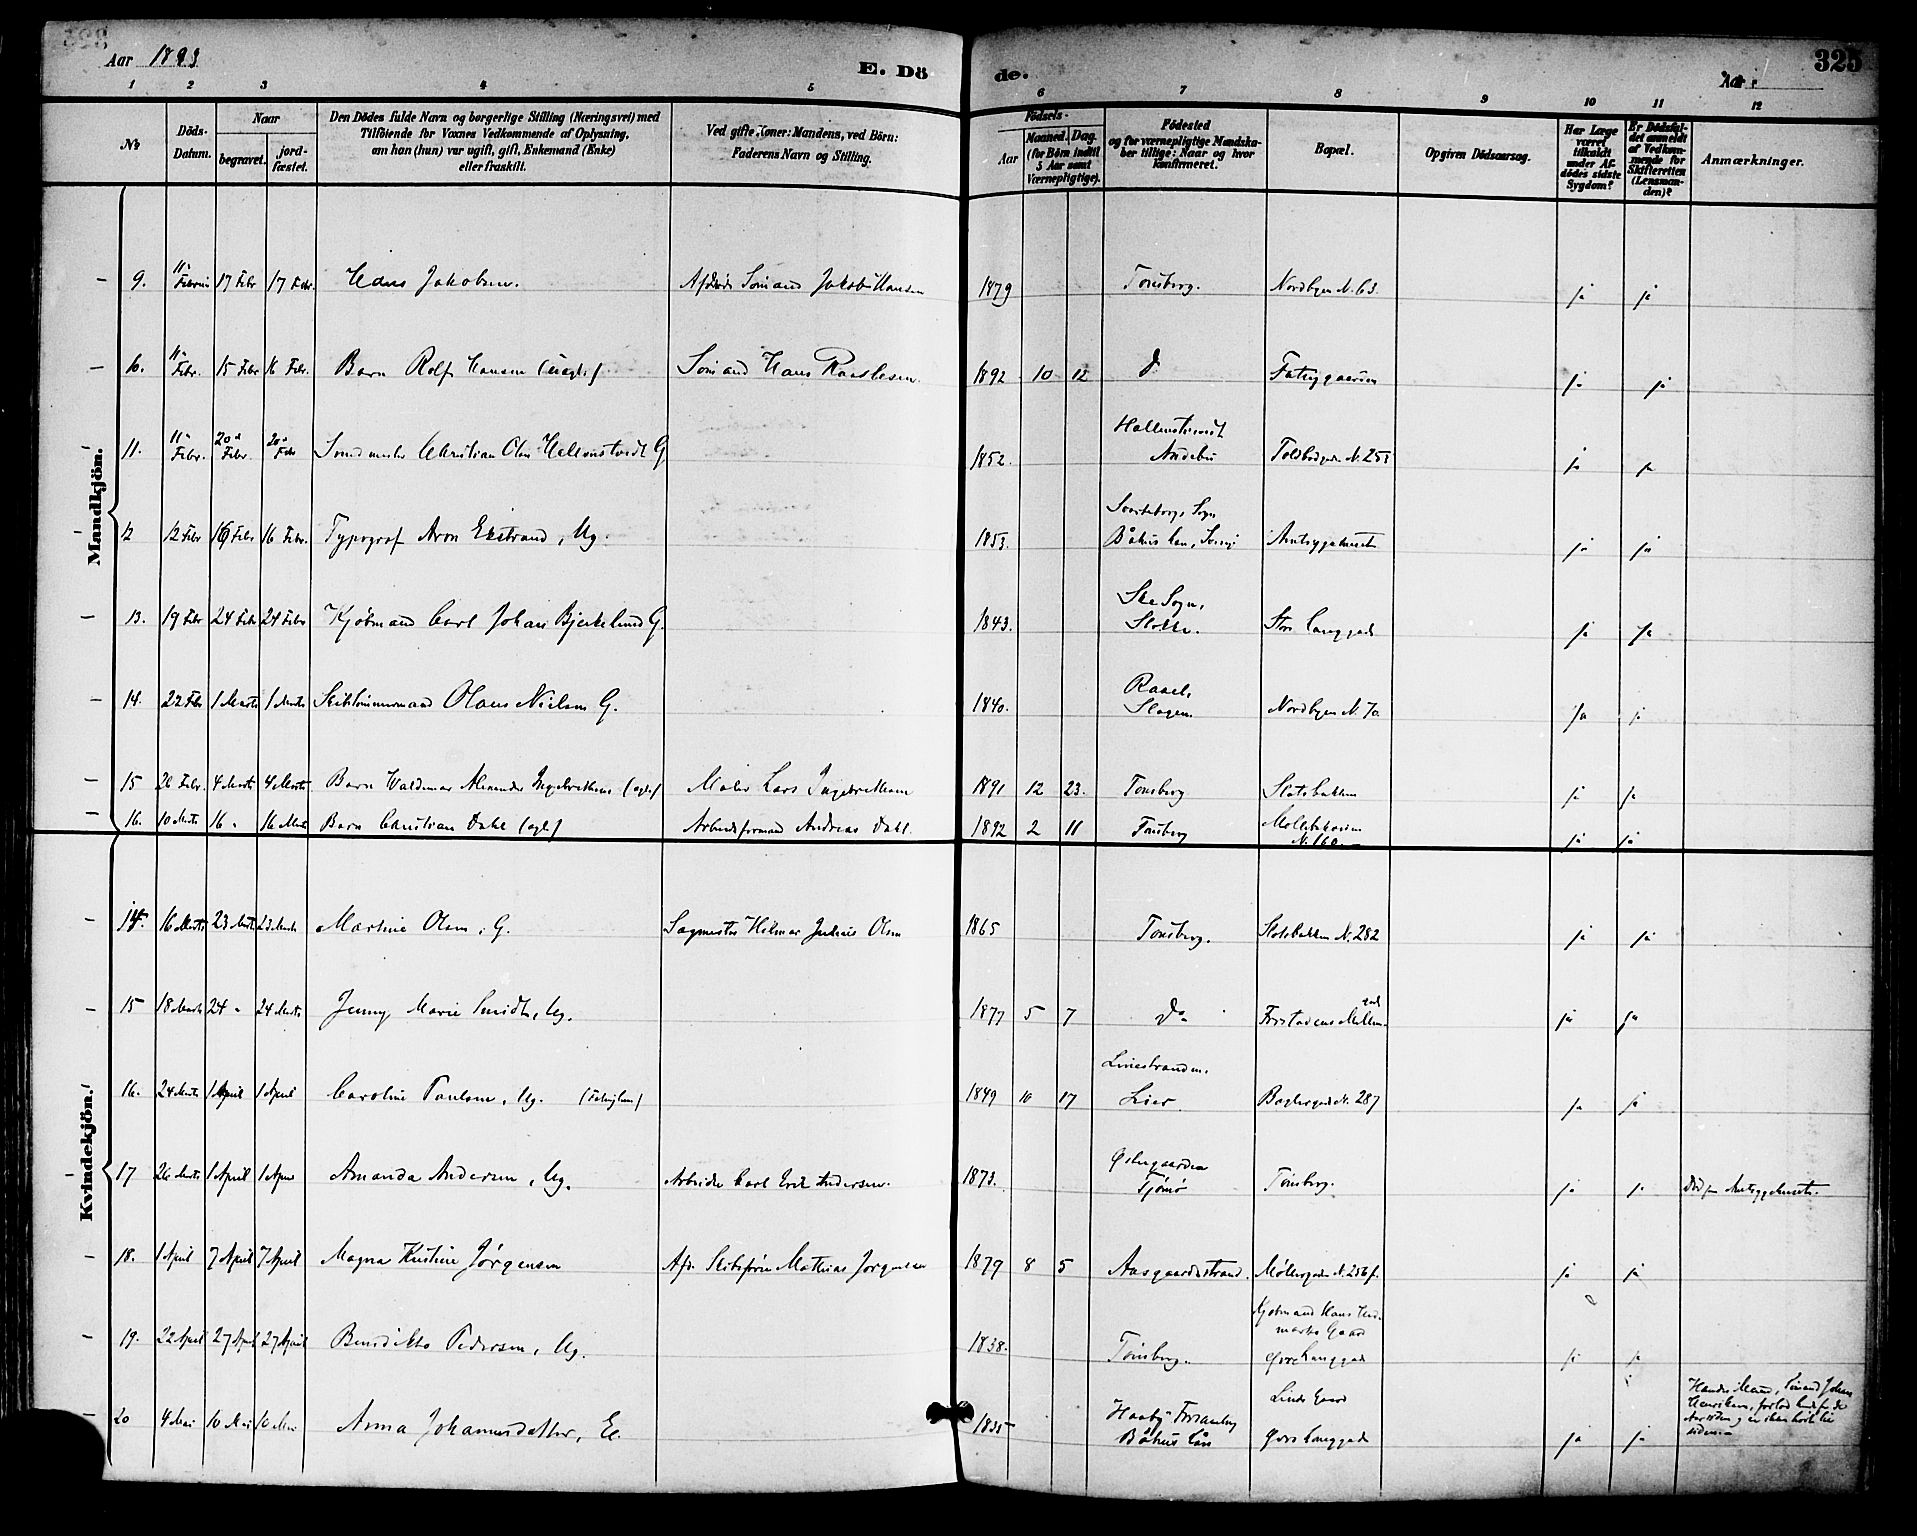 Aar 1893
E. Dö
de.
Aar
325
1 2 3 4 5 6 7 8 9 10 11 12
№
Döds-Datum.
Naar
begravet.
jordfæstet.
Den Dödes fulde Navn og borgerlige Stilling (Næringsvei) med
Tilföiende for Voxnes Vedkommende af Oplysning,
om han (hun) var ugift, gift, Enkemand (Enke)
eller fraskilt.
Ved gifte Koner: Mandens, ved Börn:
Faderens Navn og Stilling.
Födsels-
Aar
Maaned. Dag.
(for Börn indtil
5 Aar samt
Værnepligtige).
Födested
og for værnepligtige Mandska-
ber tillige: Naar og hvor
konfirmeret.
Bopæl.
Opgiven Dödsaarsag.
Har Læge
været
tilkaldt
under Af-
dödes sidste
Sygdom?
Er Dödsfal-
det anmeldt
af Vedkom-
mende for
Skifteretten
(Lensman-
den)?
Anmærkninger.
Mandkjön.
9. 11 Februar 17 Febr 17 Febr. Hans Jakobsen. Afdøde Sømand Jakob Hansen 1879 Tønsberg. Nordbyen N. 63. ja ja
10. 11 Febr. 15 Febr 16 Febr. Barn Rolf Hansen (uægte) Sømand Hans 1892 10 12 do Fattiggaarden ja ja
11. 11 Febr. 20 Febr. 20 Febr Christian Olsen G. 1852. Andebu Toldbodgaden N. 253 ja ja
12 12 Febr 16 Febr 16 Febr. Typograf Aron Ekstrand, Ug. 1853. Sogn
Båhus Len, Amtssygehuset ja ja
13. 19 Febr 24 Febr 24 Febr Kjøbmand Carl Johan Bjerkelund G. 1843. Sogn,
Stokke. Store Langgade ja ja
14. 22 Febr 1 Marts 1 Marts Skibstømmermand Olaus Nielsen G. 1840. Raael,
Slagen. Nordbyen N. 70. ja ja
15 26 Febr. 4 Marts 4 Marts Barn Valdemar Alexander Ingebretsen (ægte) Maler Lars Ingebretsen 1891 12 23. Tønsberg Slotsbakken ja ja
16. 10 Marts 16 " 16 Marts Barn Christian Dahl (ægte) Arbeidsformand Andreas Dahl. 1892 2 11 Tønsberg Møllebakken
N. 160. ja ja
Kvindekjön.
14. 16 Marts 23 Marts 23 Marts Martine Olsen, G. Sagmester Hilmar Julius Olsen 1865 Tønsberg. Slotsbakken N. 282 ja ja
15 18 Marts 24 " 24 Marts Jenny Marie Smidt, Ug. 1877 5 7 do ja ja
16. 24 Marts 1 April 1 April Caroline Paulsen, Ug. 1849 10 17 Linestranden.
Lier Baglergaden N. 287 ja ja
17 26 Marts 1 April 1 April Amanda Andersen, Ug. Arbeider Carl Erik Andersen. 1873. Østegaarden
Tjømø Tønsberg. ja ja Død paa Amtssygehuset.
18. 1 April 7 April 7 April Magna Kristine Jørgensen Afd. Skibsfører Mathias Jørgensen 1879 8 5 Aasgaardsstrand. Møllergaden N. 256 f. ja ja
19. 22 April 27 April 27 April Benedikte Pedersen, Ug. 1838. Tønsberg. Kjøbmand Hans
Gaard
Øvre Langgade ja ja
20 4 Mai 10 Mai 10 Mai Anna Johannesdatter, E. 1835 Haaby
Båhus Län Linds Gaard
Øvre Langgade ja ja Hendes Mand, Sømand Johan
Henriksen, forlod hende for
siden.